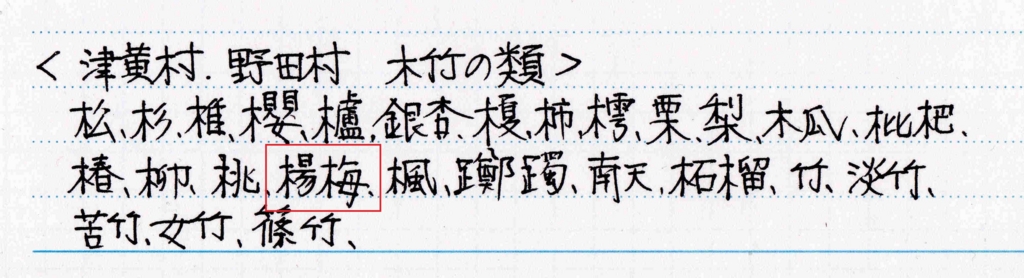 <津黄村.野田村 木竹の類>
松、杉、椎、櫻、櫨、銀杏、榎、柿、樗、栗、梨、木瓜、枇杷、
椿、柳、桃、楊梅、楓、躑躅、南天、柘榴、竹、淡竹、
苦竹、女竹、篠竹、